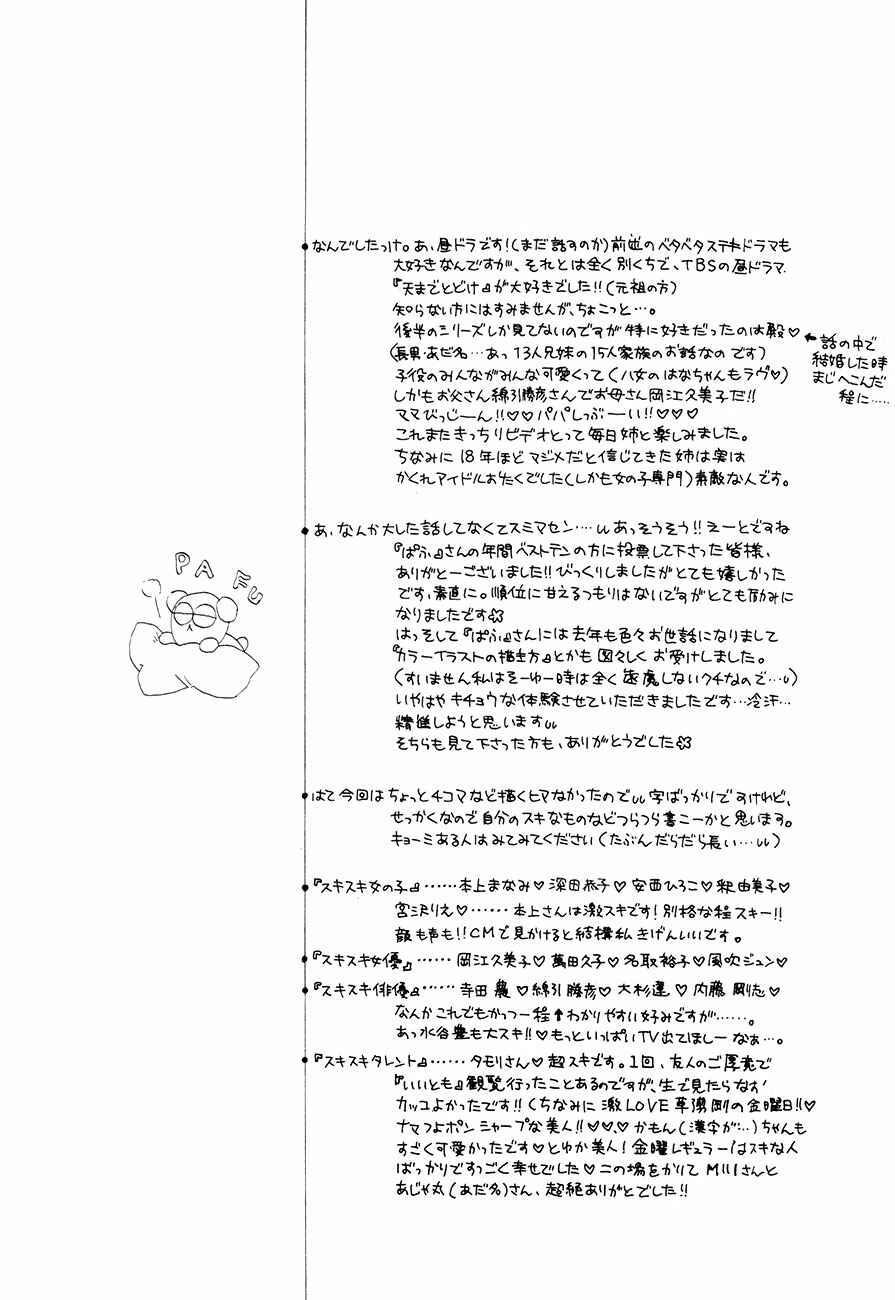 ・なんでしたっけ。あ、昼ドラです！(まだ話すのか)前述のベタベタステキドラマも
大好きなんですが、それとは全く別くちで、TBSの昼ドラマ
『天までとどけ』が大好きでした!!(元祖の方)
知らない方にはすみませんが、ちょこっと…。
後半のシリーズしか見てないのですが特に好きだったのは殿♡
←話の中で
結婚した時
まじへこんだ
程に……
(長男・あだ名…あっ13人兄妹の15人家族のお話なのです)
子役のみんながみんな可愛くって(八女のはなちゃんもラヴ♡)
しかもお父さん綿引勝彦さんでお母さん岡江久美子だ!!
ママびっじーん!!♡♡パパしっぶーい!!♡♡♡
これまたきっちりビデオとって毎日姉と楽しみました。
ちなみに18年ほどマジメだと信じてきた姉は実は
かくれアイドルおたくでした(しかも女の子専門)素敵なんです。
・あ、なんか大した話してなくてスミマセン…。あっそうそう!!えーとですね
PAFU
『ぱふ』さんの年間ベストテンの方に投票して下さった皆様、
ありがとーございました!!びっくりしましたがとても嬉しかった
です、素直に。順位に甘えるつもりはないですがとても励みに
なりましたです
はっそして『ぱふ』さんには去年も色々お世話になりまして
『カラーイラストの描き方』とかも図々しくお受けしました。
(すいません私はそーゆー時は全く遠慮しないクチなので…)
いやはやキチョウな体験させていただきましたです…冷汗…
精進しようと思います
そちらも見て下さった方も、ありがとうでした
・はて今回はちょっと4コマなど描くヒマなかったので字ばっかりですけれど、
せっかくなので自分のスキなものなどつらつら書こーかと思います。
キョーミある人はみてみてください(たぶんだらだら長い…)
・『スキスキ女の子』……本上まなみ♡深田恭子♡安西ひろこ♡釈由美子♡
宮沢りえ♡……本上さんは激スキです！別格な程スキー!!
顔も声も!!CMで見かけると結構私きげんいいです。
・『スキスキ女優』……岡江久美子♡萬田久子♡名取裕子♡風吹ジュン♡
・『スキスキ俳優』……寺田農♡綿引勝彦♡大杉漣♡内藤剛志♡
なんかこれでもかっつー程↑わかりやすい好みですが……。
あっ水谷豊も大スキ!!♡もっといっぱいTV出てほしーなぁ…。
・『スキスキタレント』……タモリさん♡超スキです。1回、友人のご厚意で
『いいとも』観覧行ったことあるのですが、生で見たらなお
カッコよかったです!!(ちなみに激LOVE草彅剛の金曜日!!♡
ナマつよポンシャープな美人!!♡♡♡かもん(漢字が…)ちゃんも
すごく可愛かったです♡とゆか美人！金曜レギュラーはスキな人
ばっかりですっごく幸せでした♡この場をかりてMillさんと
あじゃ丸(あだ名)さん、超絶ありがとでした!!